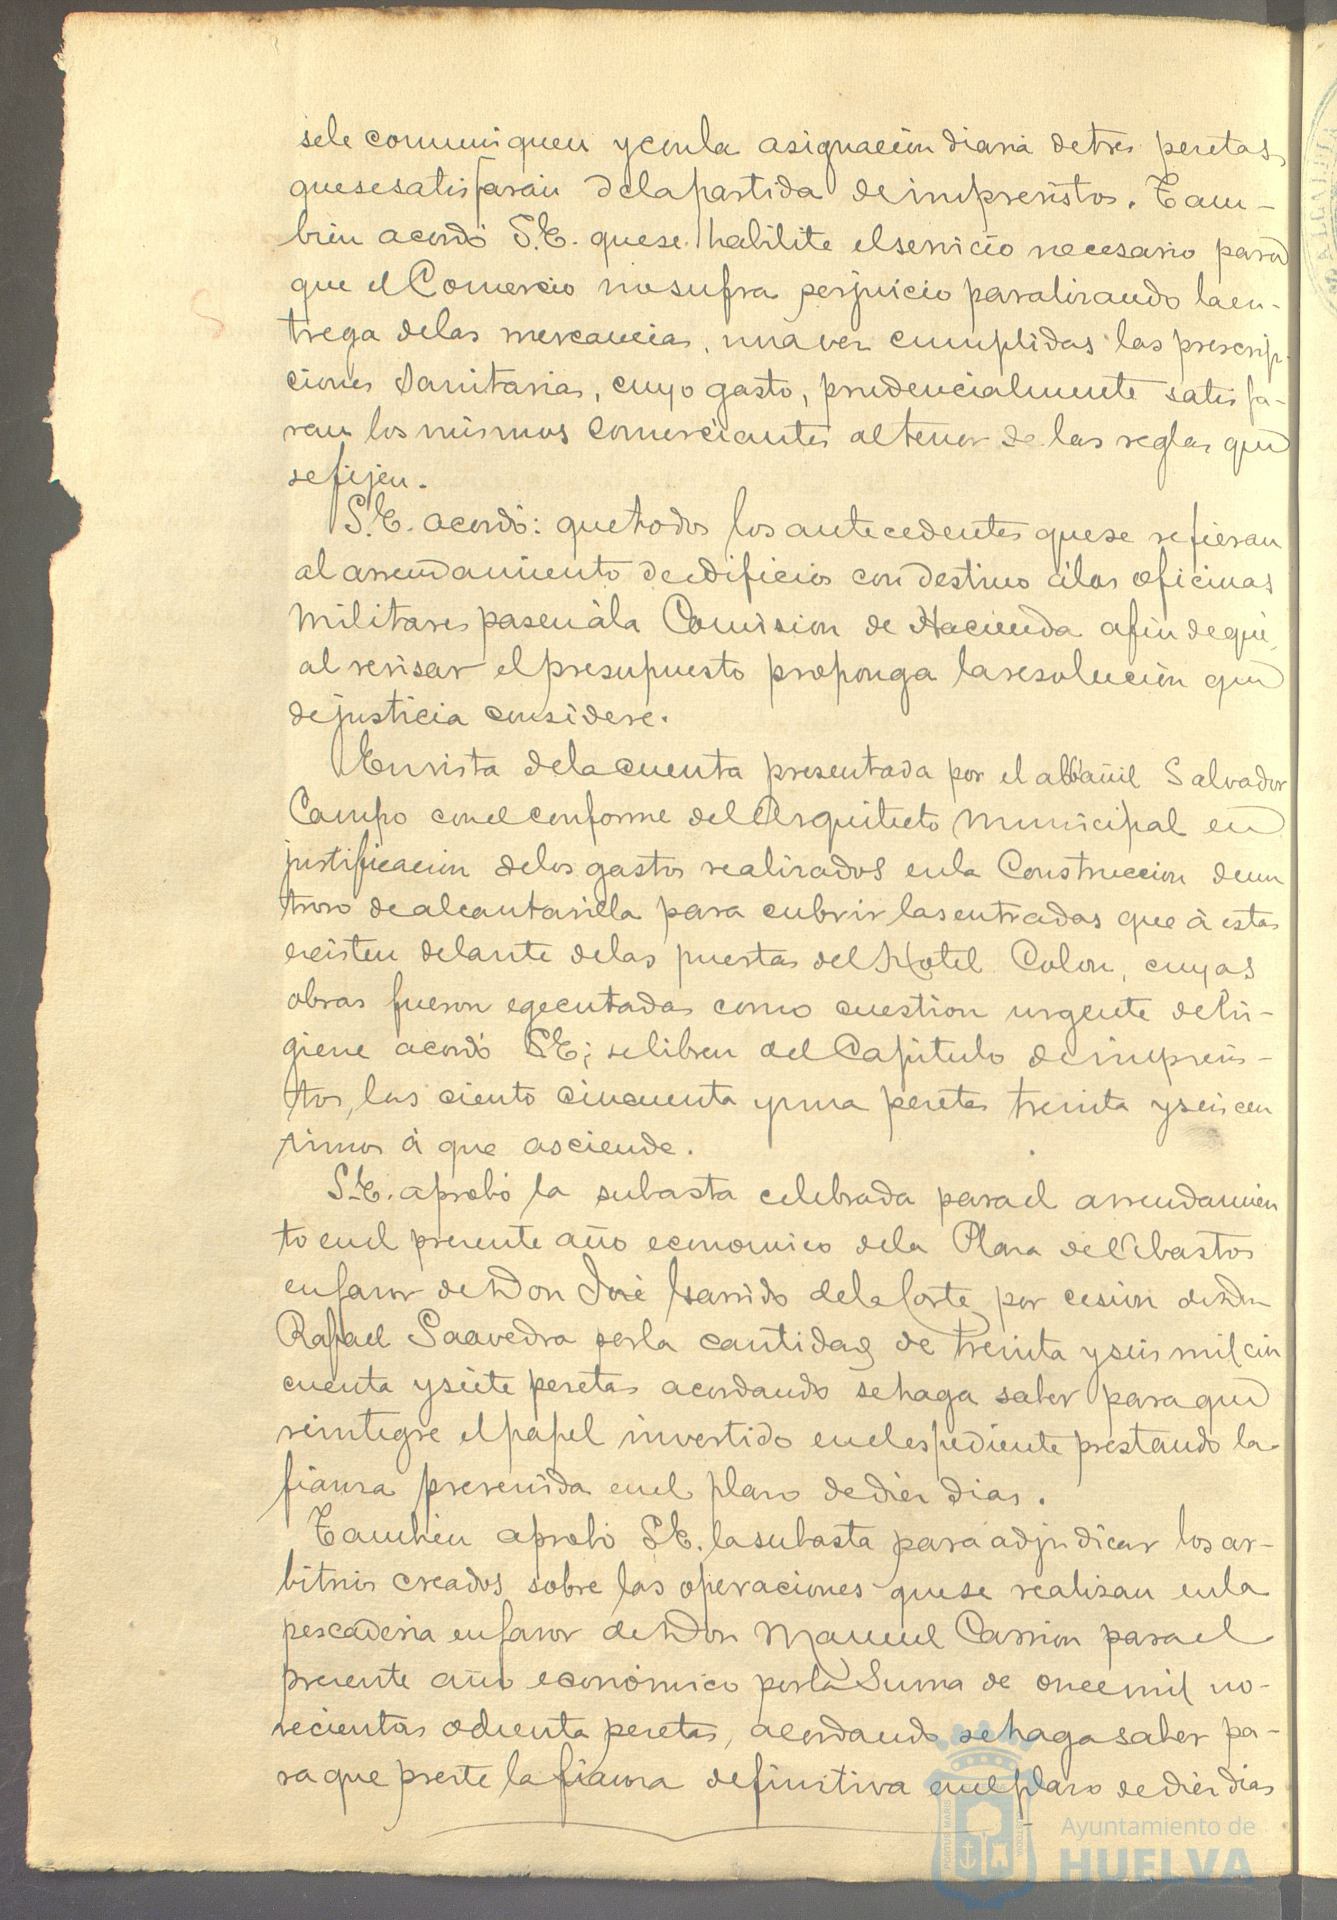 se le comuniquen y con la asignacion diaria de tres pesetas
que se satisfarán de la partida de imprevistos. Tam-
bien acordó S.E. que se habilite el servicio necesario para
que el Comercio no sufra perjuicio paralizando la en-
trega de las mercancias, una vez cumplidas las prescrip-
ciones sanitarias, cuyo gasto, prudencialmente satisfa-
ran los mismos comerciantes al tenor de las reglas que
se fijen.
S.E. acordó: que todos los antecedentes que se refieran
al arrendamiento de edificios con destino á las oficinas
militares pasen á la Comision de Hacienda a fin de que,
al revisar el presupuesto proponga la resolucion que
de justicia considere.
En vista de la cuenta presentada por el albañil Salvador
Campo con el conforme del Arquitecto Municipal en
justificacion de los gastos realizados en la Construccion de un
trozo de alcantarilla para cubrir las entradas que á estas
existen delante de las puertas del Hotel Colon, cuyas
obras fueron egecutadas como cuestion urgente de hi-
giene acordó S.E; se libren del Capitulo de imprevis-
tos, las ciento cincuenta y una pesetas treinta y seis cen
timos á que asciende.
S.E. aprobó la subasta celebrada para el arrendamien
to en el presente año economico de la Plaza de Abastos
en favor de Don José Garrido de la Corte por cesion de Don
Rafael Saavedra por la cantidad de treinta y seis mil cin
cuenta y siete pesetas acordando se haga saber para que
reintegre el papel invertido en el espediente prestando la
fianza prevenida en el plazo de diez dias.
Tambien aprobó S.E. la subasta para adjudicar los ar-
bitrios creados sobre las operaciones que se realizan en la
pescaderia en favor de Don Manuel Carrion para el
presente año económico por la Suma de once mil no-
vecientas ochenta pesetas, acordando se haga saber pa-
ra que preste la fianza definitiva en el plazo de diez dias
Ayuntamiento de
HUELVA